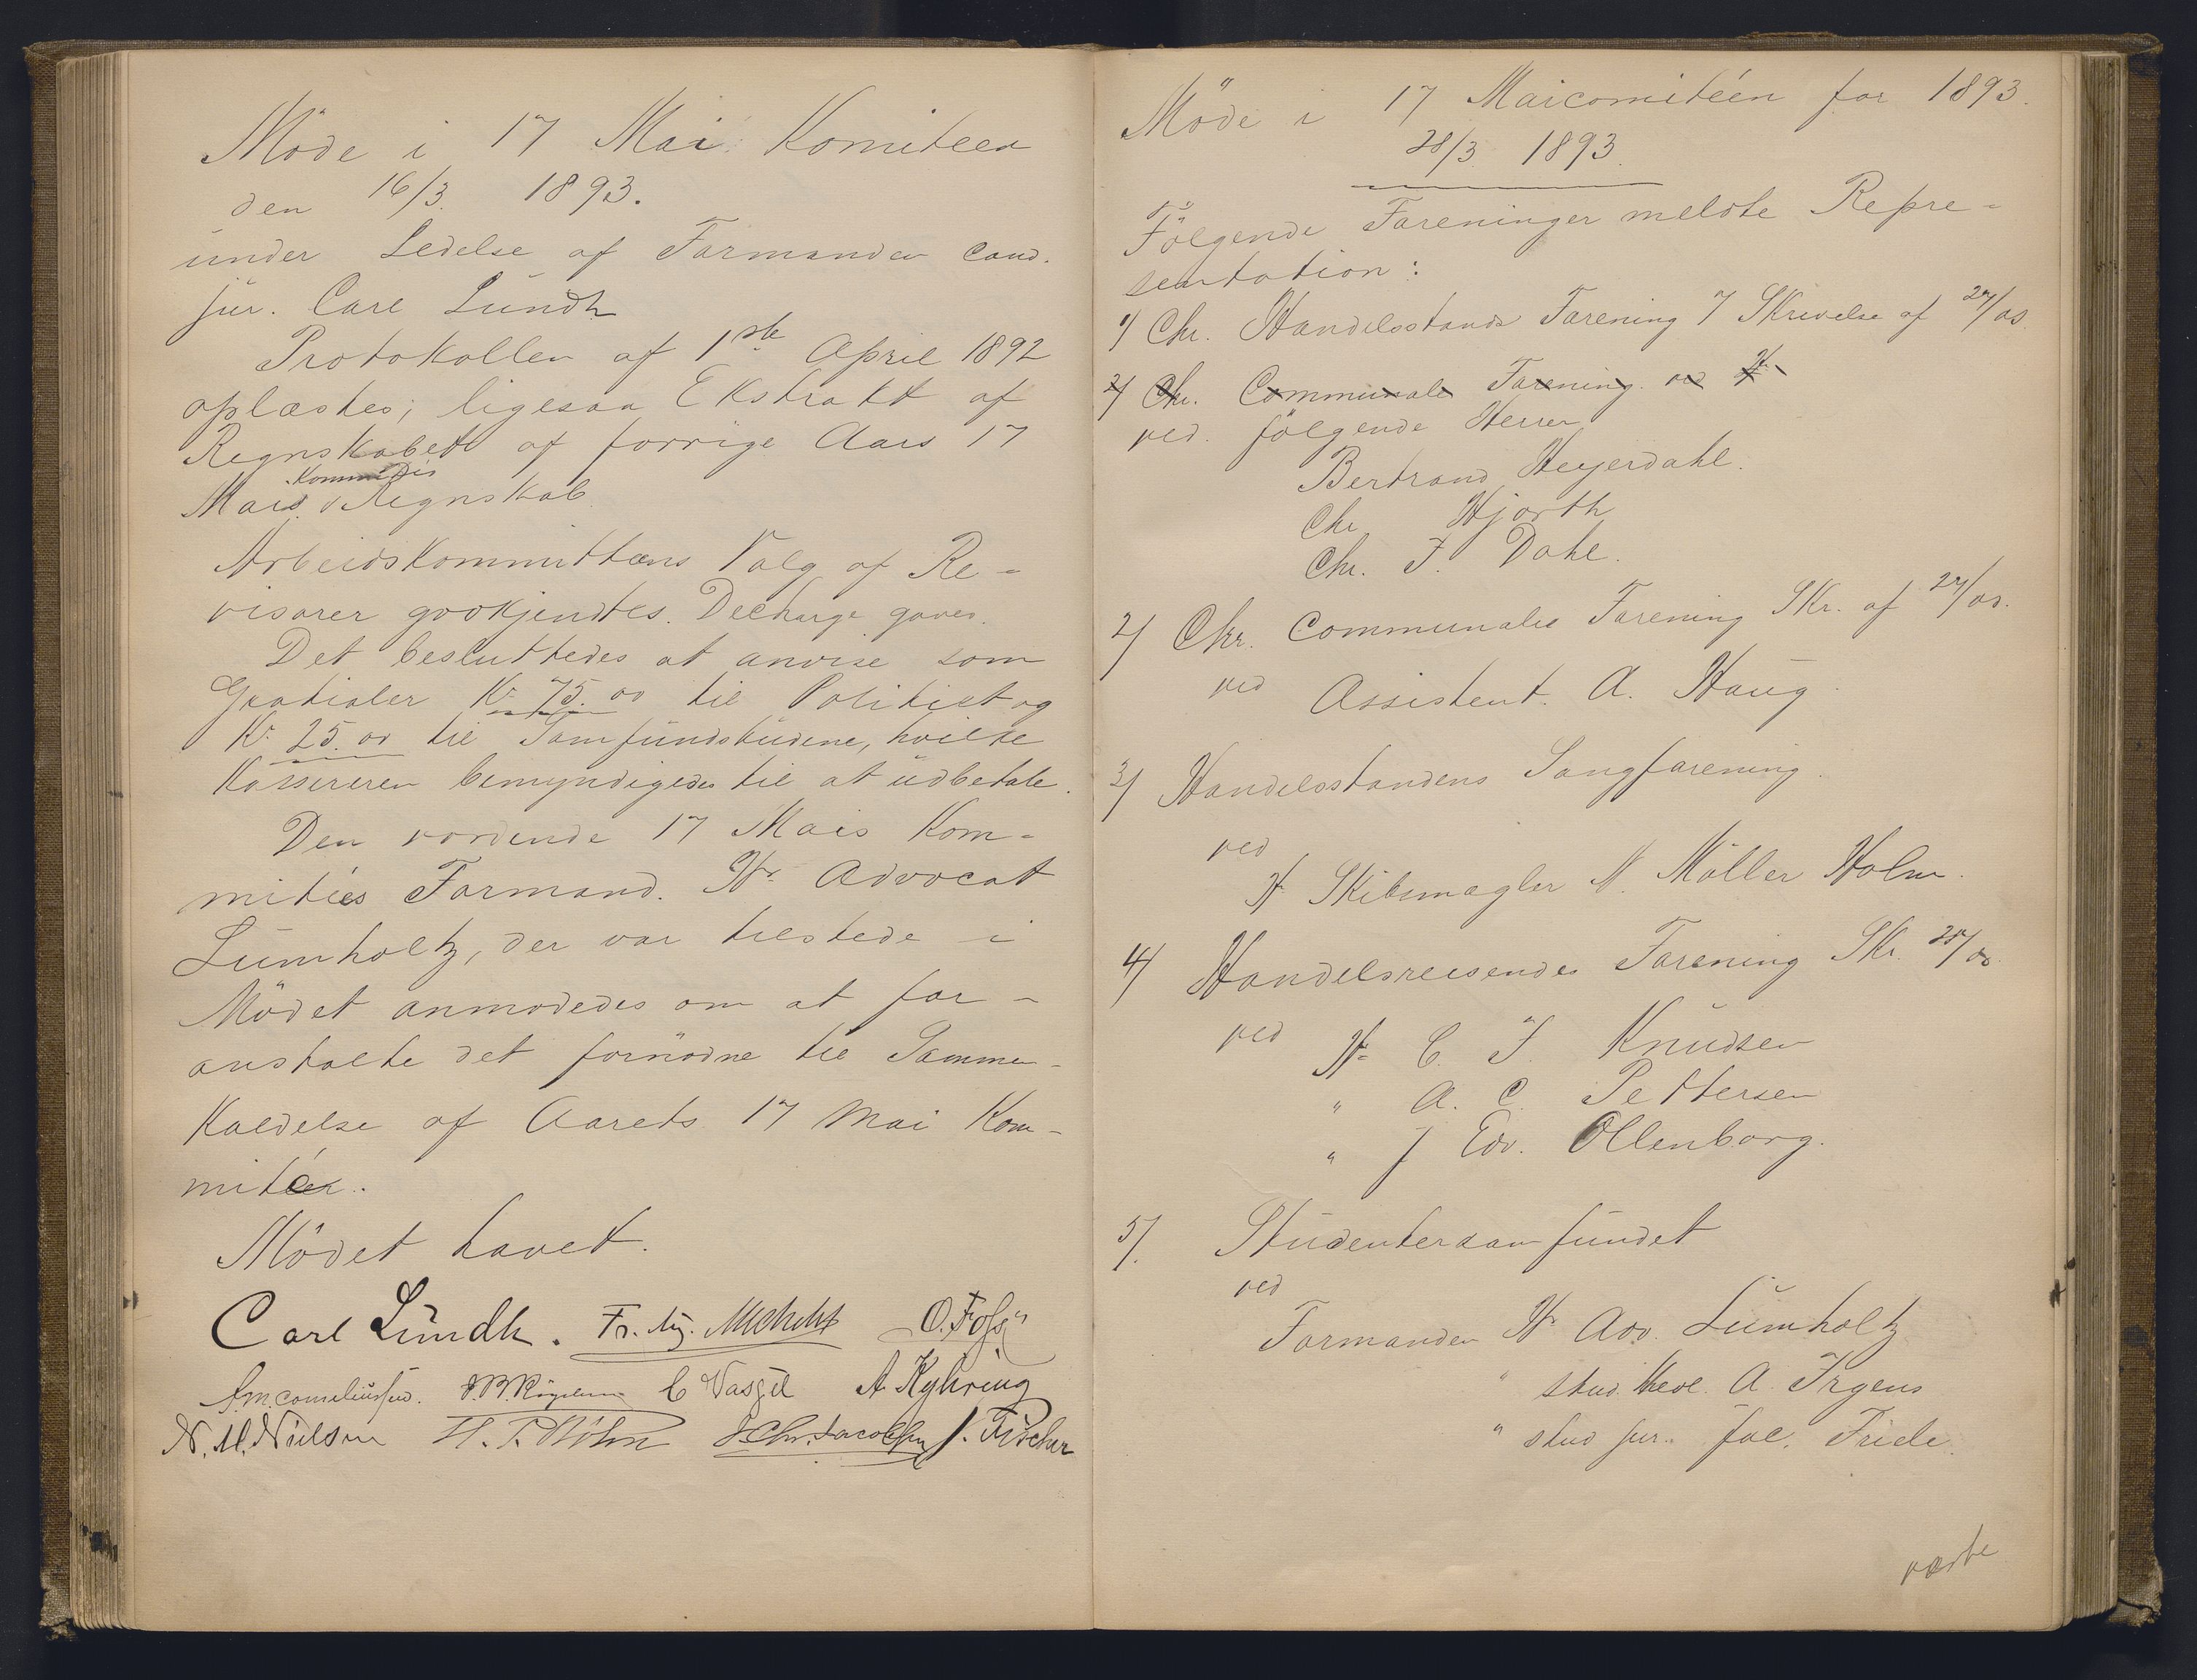 Möde i 17 Mai Komiteen
den 16/3 1893.
under Ledelse af Formanden cand.
jur. Carl Lundh
Protokollen af 1ste April 1892
oplæstes; ligesaa Ekstrakt af
Regnskabet af forrige Aars 17
Kommités
Mais Regnskab.
Arbeidskommitteens Valg af Re-
visorer godkjendtes. Decharge gaves.
Det besluttedes at anvise som
Gratialer Kr 75.00 til Politiet og
Kr 25.00 til Samfundsbudene, hvilke
Kassereren bemyndigedes til at udbetale.
Den vordende 17 Mais Kom-
mitées Formand. Hr Advocat
Lumholtz, der var tilstede i
Mödet anmodedes om at for-
anstalte det fornödne til Sammen-
kaldelse af Aarets 17 Mai Kom-
mitée.
Mödet hævet.
Carl Lundh. Fr. Aug. Michelet O. Foss
C Vasgil A Kyhring
N. M. Nielsen J. Chr. Jacobsen J. Fischer
Möde i 17 Maicomitéen for 1893.
28/3 1893.
Fölgende Foreninger meldte Repre-
sentation:
1/ Chr. Handelsstands Forening 7 Skrivelse af 27/ds.
2/ Chr. Communale Forening ved Hr
ved fölgende Herrer
Bertrand Heyerdahl.
Chr Hjorth
Chr. F. Dahl.
2/ Chr. Communales Forening Skr. af 27/ds.
ved Assistent. A. Haug.
3/ Handelsstandens Sangforening.
ved
Hr Skibsmægler N. Möller Holm.
4/ Handelsreisendes Forening Skr. 25/ds.
ved Hr C. F. Knudsen
" A. C. Pettersen
" J Edv. Ollenborg.
5/. Studentersamfundet
ved
Formanden Hr Adv. Lumholtz
" stud. theol. A. Irgens
" stud jur. Joh. Friele.
væste